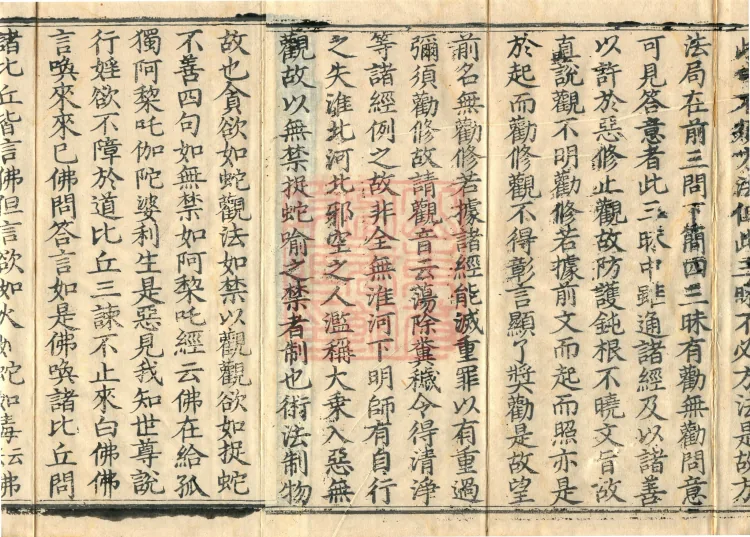 三昧不必方法是故方
法局在前三問下簡四三昧有勸無勸問意
可見答意者此三昧中雖通諸經及以諸善
以許於惡修止觀故防護鈍根不曉文旨故
真說觀不明勸修若據前文而起而照亦是
於起而勸修觀不得彰言顯了奬勸是故望
前名無勸修若據諸經能滅重罪以有重過
彌須勸修故請觀音云蕩除糞穢令得清淨
等諸經例之故非全無淮河下明師有自行
之失淮北河北邪空之人濫稱大乗入惡無
觀故以無禁捉蛇喻之禁者制也術法制物
故也貪欲如蛇觀法如禁以觀觀欲如捉蛇
不善四句如無禁如阿黎吒經云佛在給孤
獨阿黎吒伽陀婆利生是惡見我知世尊說
行婬欲不障於道比丘三諫不止來白佛佛
言喚來來已佛問答言如是佛喚諸比丘問
諸比丘皆言佛但言欲如火如蛇如毒云佛